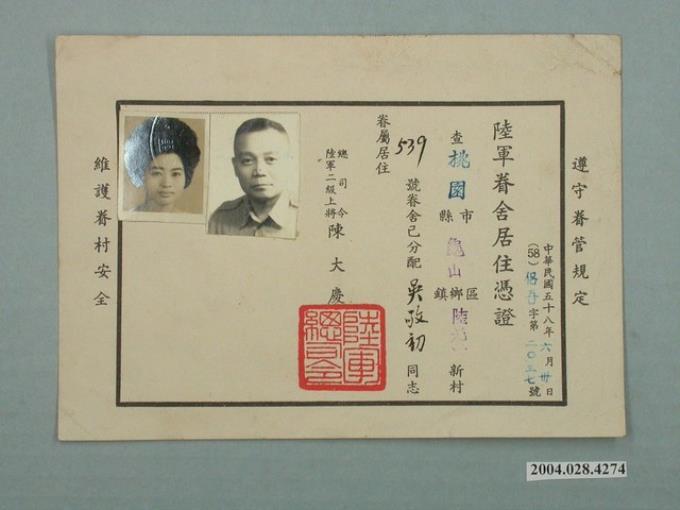 遵守眷管規定
中華民國五十八年六月卅日
(58)侶吾字第二〇三七號
陸軍眷舍居住憑證
查桃園縣市龜山鎮鄉區陸光新村
539號眷舍已分配吳敬初同志
眷屬居住
總司令
陸軍二級上將 陳大慶
陸軍總司令
維護眷村安全
2004.028.4274